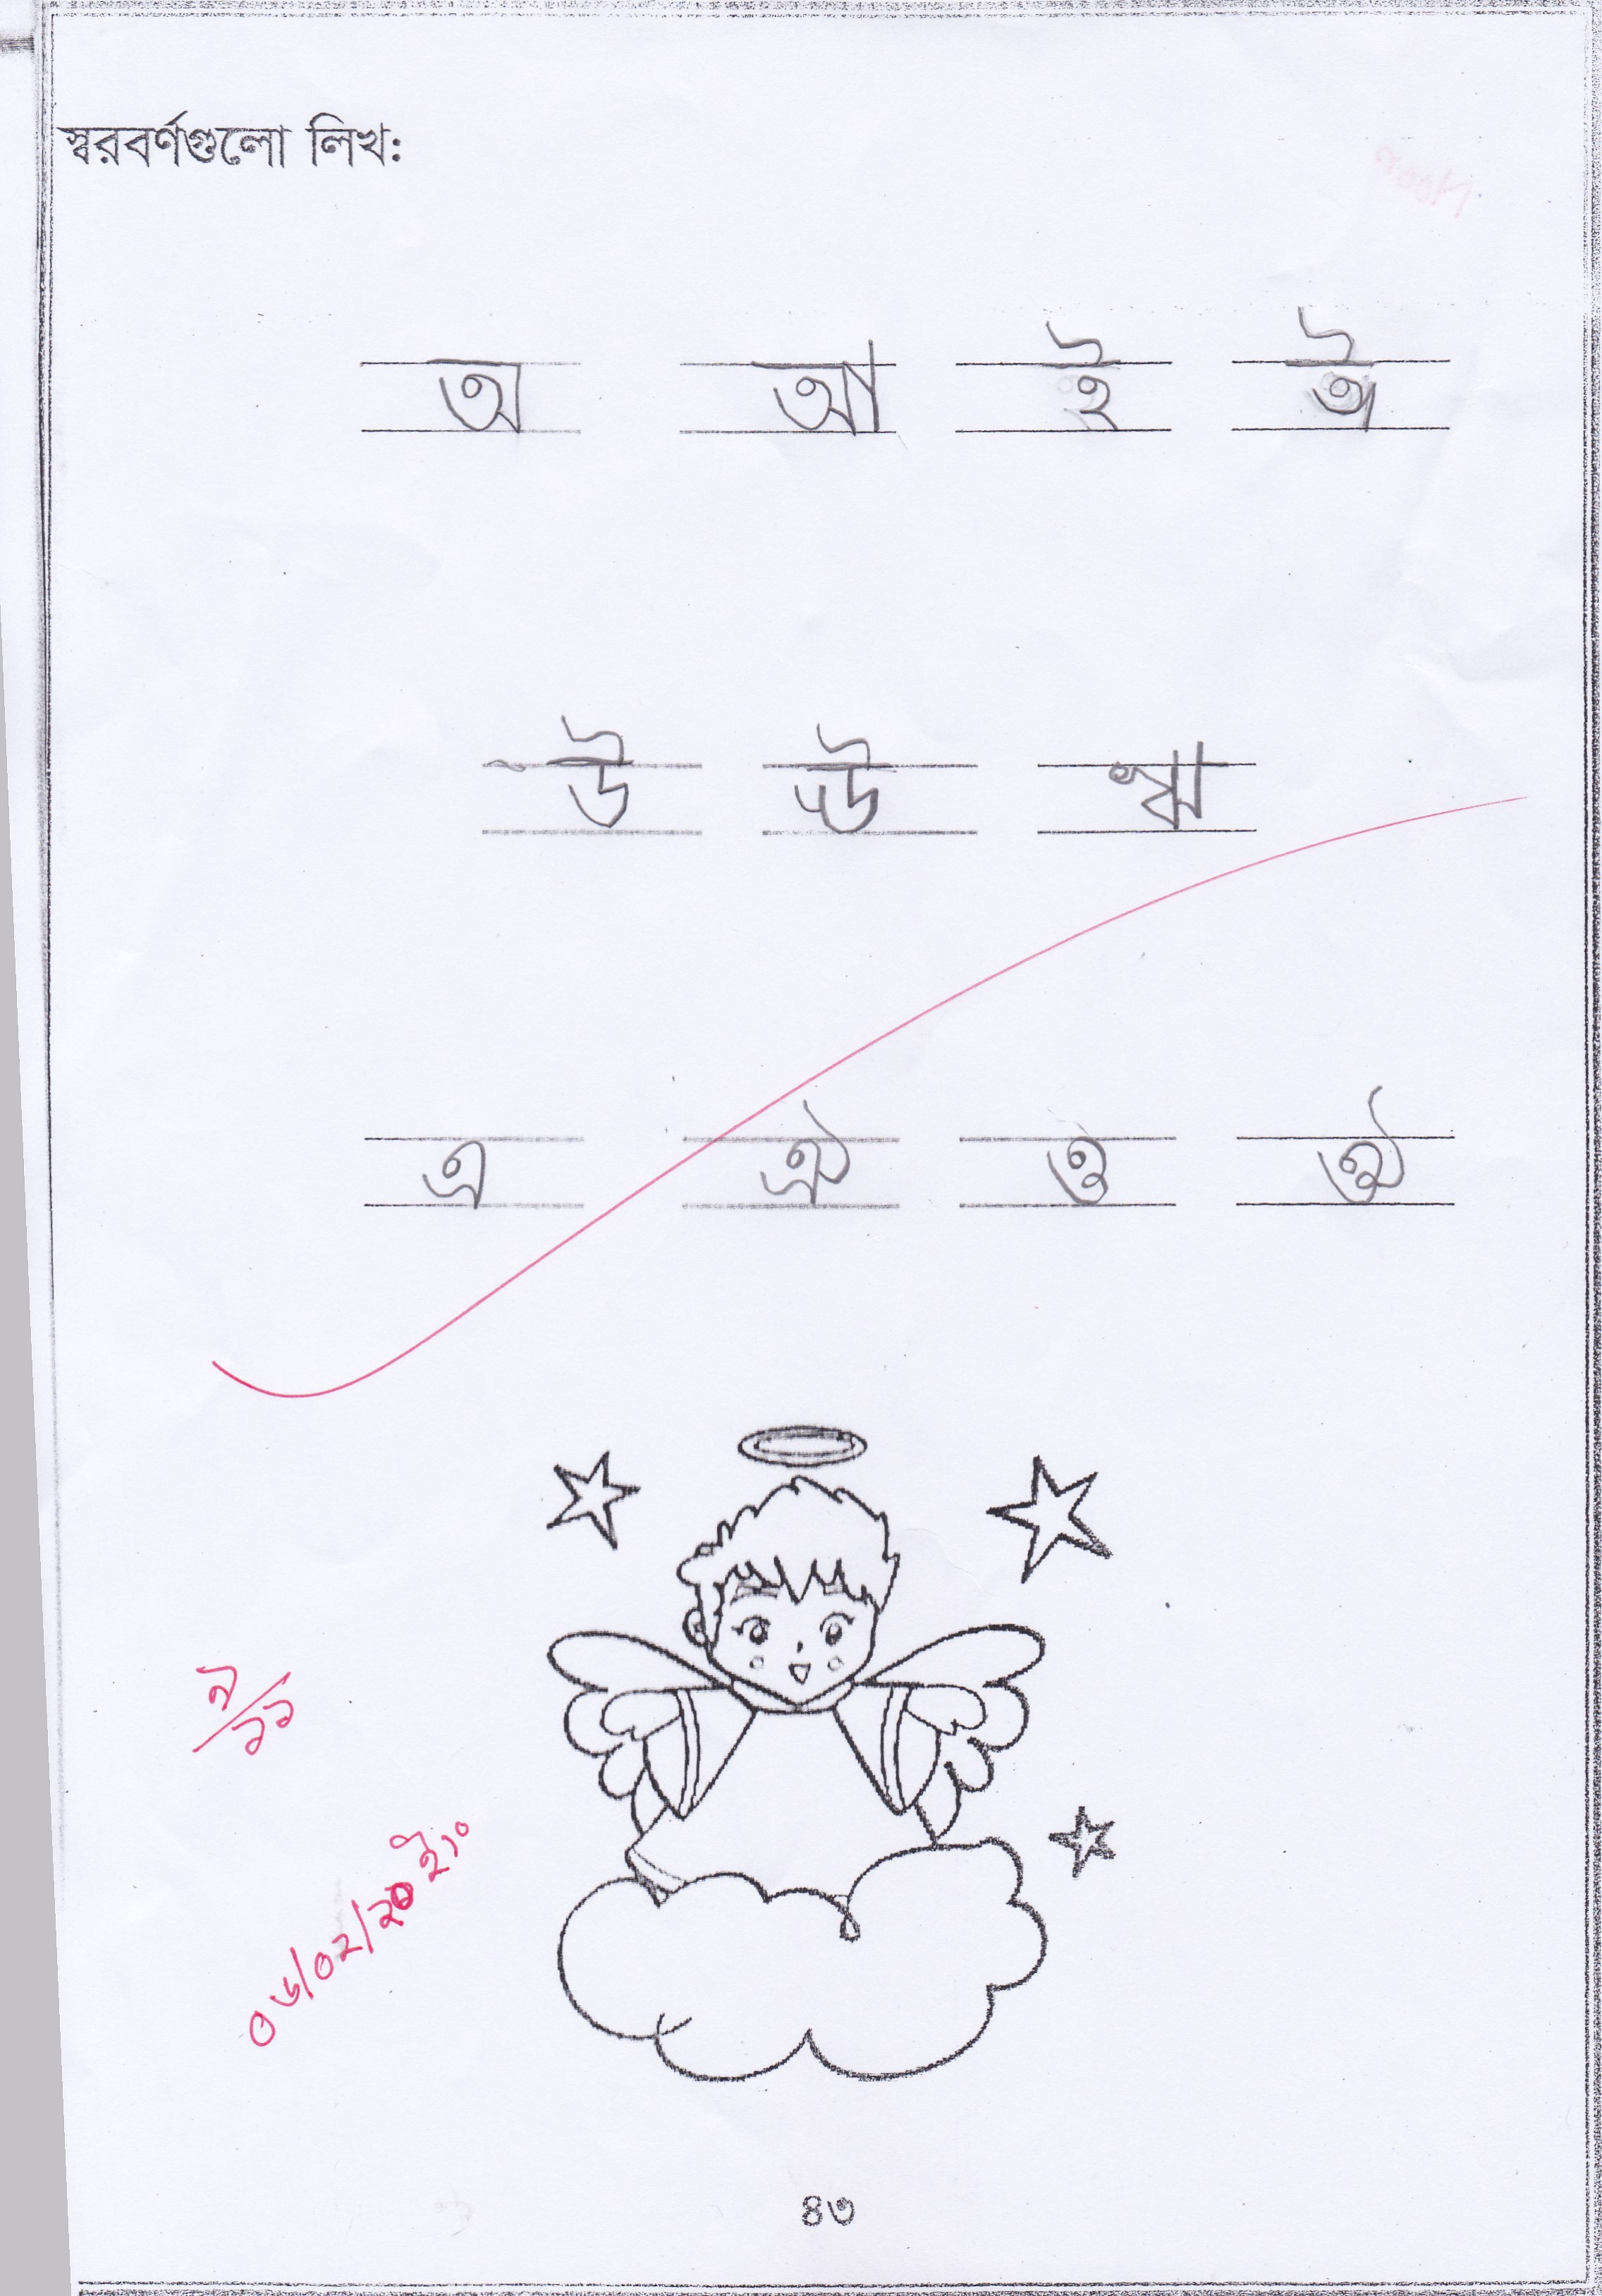 স্বরবর্ণগুলো লিখ:
অ আ ই ঈ
উ ঊ ঋ
এ ঐ ও ঔ
০৬/০২/২০ ইং
৪৩